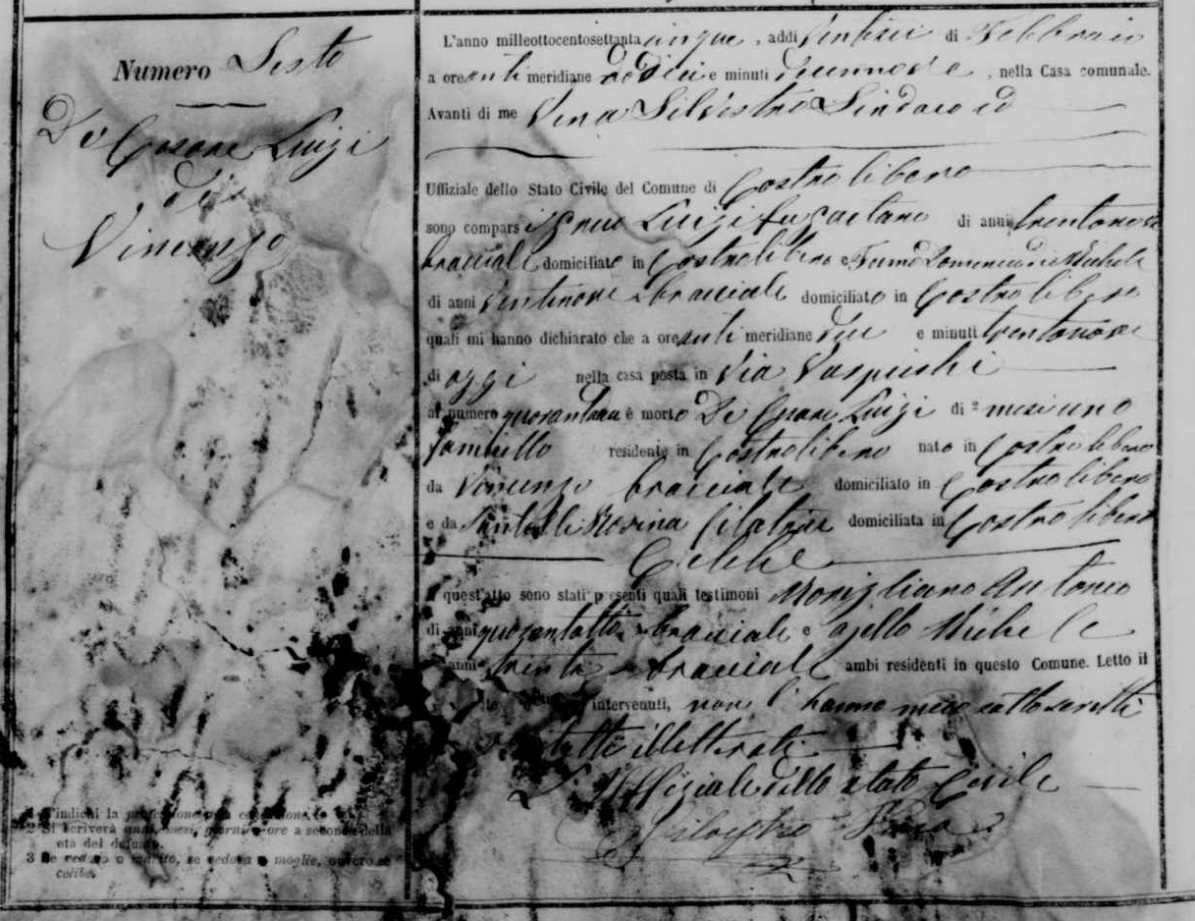 Numero Sesto
De Cesare Luigi
di
Vincenzo
L'anno milleottocentosettanta cinque, addi Ventisei di Febbraio
a ore anti meridiane dodici e minuti diecinnove, nella Casa comunale.
Avanti di me Vena Silvestro Sindaco ed
Uffiziale dello Stato Civile del Comune di Castrolibero
sono comparsi Luigi fu Gaetano di anni trentanove
bracciale domiciliato in Castrolibero e Domenico di Michele
di anni Ventinove bracciale domiciliato in Castrolibero
quali mi hanno dichiarato che a ore anti meridiane due e minuti trentanove
di oggi nella casa posta in Via
al numero è morto De Cesare Luigi di ² mesi uno
residente in Castrolibero nato in Castrolibero
da Vincenzo bracciale domiciliato in Castrolibero
e da Rosina filatrice domiciliata in Castrolibero
Celibe
A quest'atto sono stati presenti quali testimoni Morigliano Antonio
di anni quarantotto bracciale e ajello Michele
anni trenta bracciale ambi residenti in questo Comune. Letto il
intervenuti, non l'hanno meco sottoscritto
illetterati
L'Uffiziale dello stato Civile
Silvestro Vena
1 S'indichi la professione o la condizione.
2 Si scriverà anni, mesi, giorni o ore a seconda della
età del defunto.
3 Se vedovo o marito, se vedova o moglie, ovvero se
celibe.